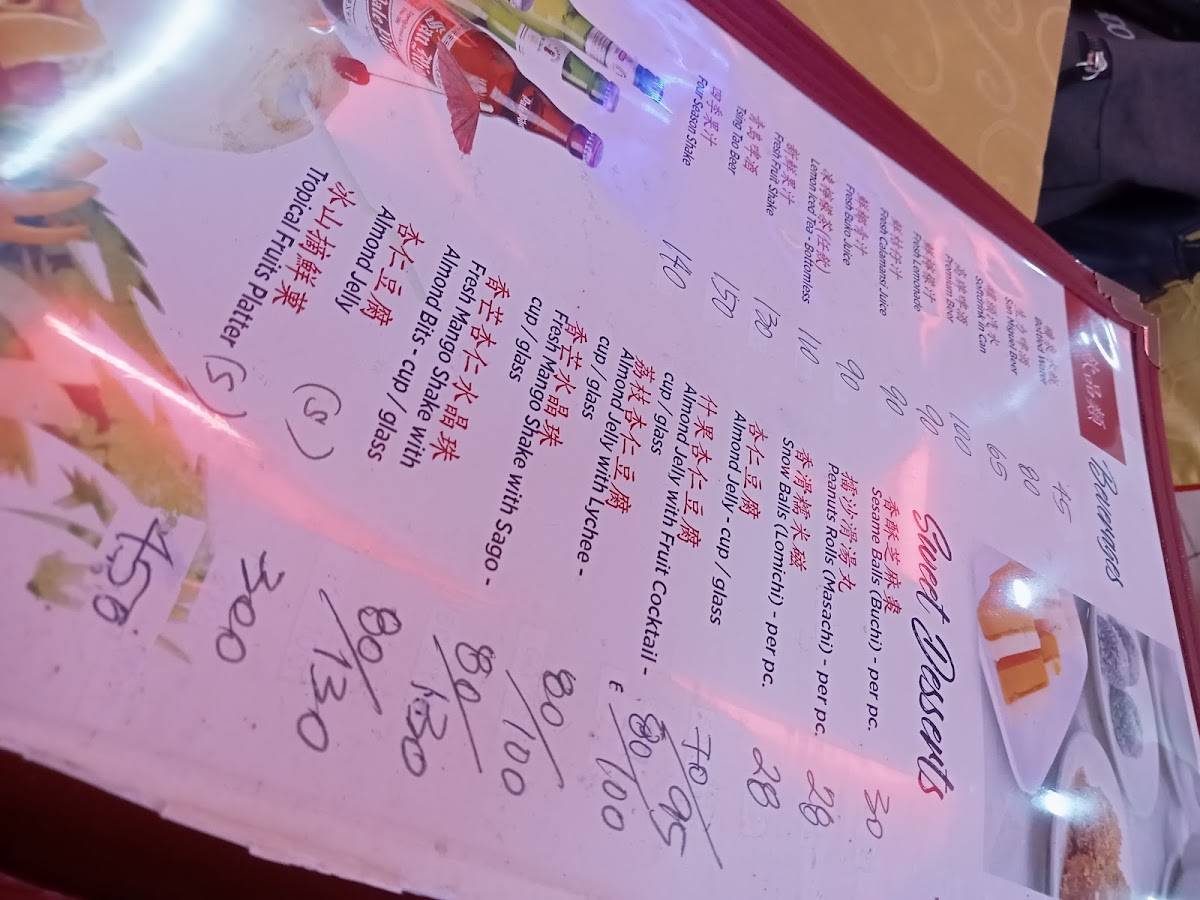 Beverages
Bottled Water 45
生力啤酒
San Miguel Beer 80
罐頭汽水
Softdrink in Can 65
高級啤酒
Premium Beer 100
鮮檸檬汁
Fresh Lemonade 90
鮮柑仔汁
Fresh Calamansi Juice 90
鮮椰青汁
Fresh Buko Juice 90
凍檸檬茶(任飲)
Lemon Iced Tea - Bottomless 110
鮮果汁
Fresh Fruit Shake 130
青島啤酒
Tsing Tao Beer 150
四季果汁
Four Season Shake 140
Sweet Desserts
香酥芝麻棗
Sesame Balls (Buchi) - per pc. 30
擂沙湯丸
Peanuts Rolls (Masachi) - per pc. 28
香滑糯米磁
Snow Balls (Lomichi) - per pc. 28
杏仁豆腐
Almond Jelly - cup / glass 70/95
什果杏仁豆腐
Almond Jelly with Fruit Cocktail -
cup / glass 80/100
荔枝杏仁豆腐
Almond Jelly with Lychee -
cup / glass 80/100
香芒水晶珠
Fresh Mango Shake with Sago -
cup / glass 80/130
香芒杏仁水晶珠
Fresh Mango Shake with
Almond Bits - cup / glass 80/130
杏仁豆腐
Almond Jelly (S) 300
冰山摘鮮菓
Tropical Fruits Platter (S) 450